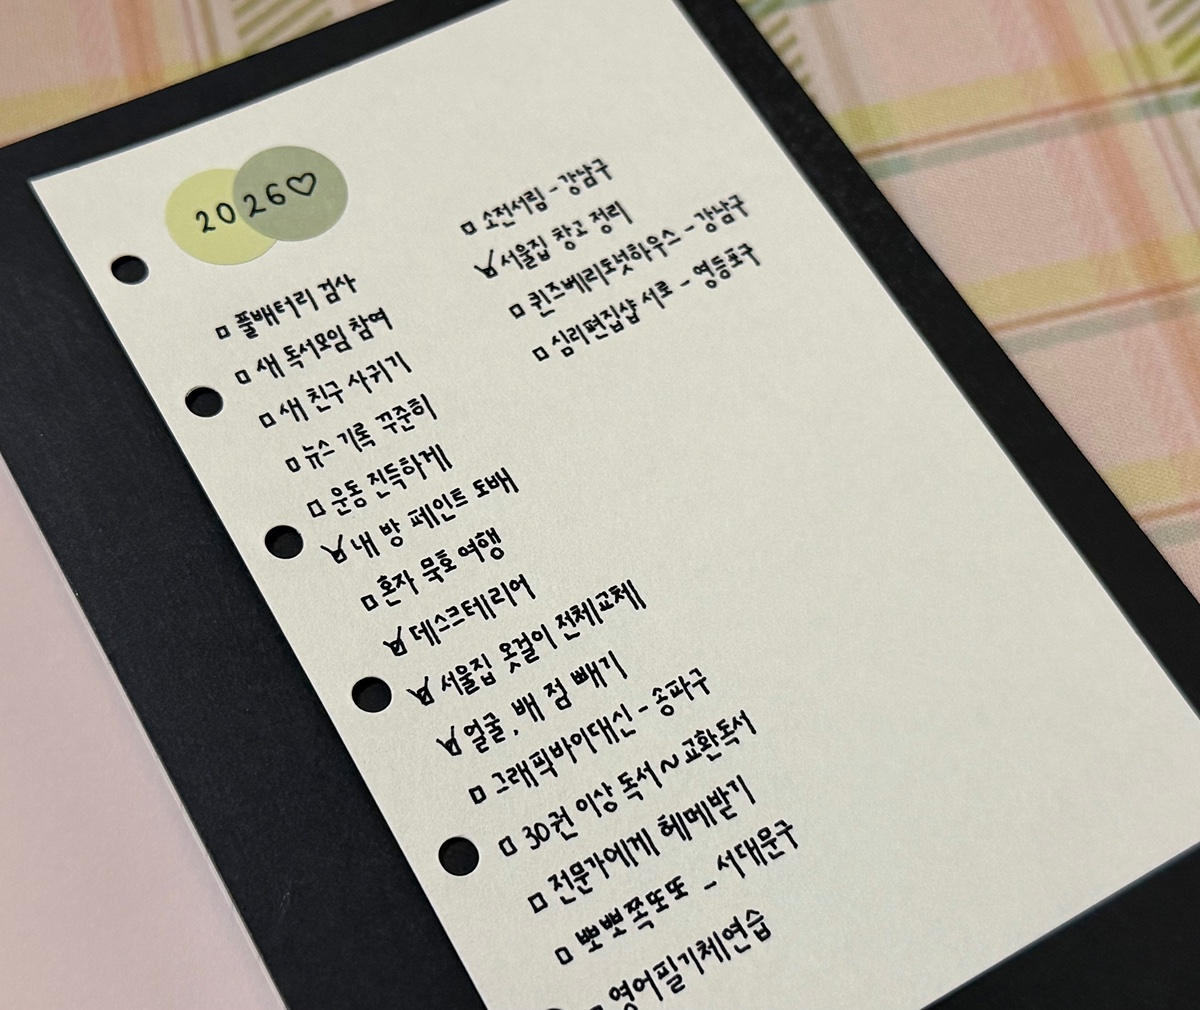 2026♡
□ 풀배터리 검사
□ 새 독서모임 참여
□ 새 친구 사귀기
□ 뉴스 기록 꾸준히
□ 운동 진득하게
☑ 내 방 페인트 도배
□ 혼자 묵호 여행
☑ 데스크테리어
☑ 서울집 옷걸이 전체교체
☑ 얼굴, 배 점 빼기
□ 그래픽바이대신 - 송파구
□ 30권 이상 독서 ~ 교환독서
□ 전문가에게 헤메받기
□ 뽀뽀쪽또또 - 서대문구
□ 영어필기체연습
□ 소전서림 - 강남구
☑ 서울집 창고 정리
□ 퀸즈베리도넛하우스 - 강남구
□ 심리편집샵 서로 - 영등포구